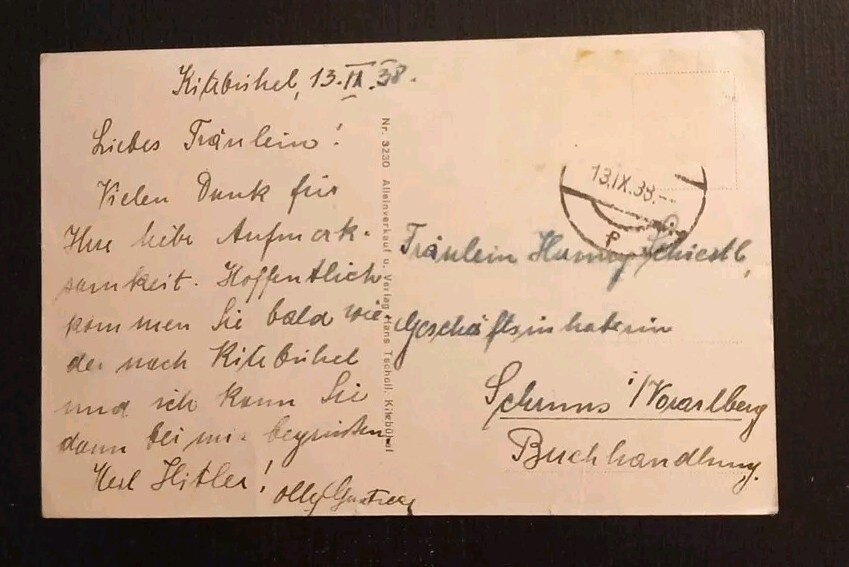 Kitzbühel, 13.IX.38.
Liebes Fräulein!
Vielen Dank für
Ihre liebe Aufmerk-
samkeit. Hoffentlich
kommen Sie bald wie-
der nach Kitzbühel
und ich kann Sie
dann bei mir begrüssen
Heil Hitler!
Olly
Nr. 3230 Alleinverkauf u. Verlag Hans Tscholl, Kitzbühel
13.IX.38.--
Fräulein Schiestl,
Geschäftsinhaberin
Schruns i/Vorarlberg
Buchhandlung.